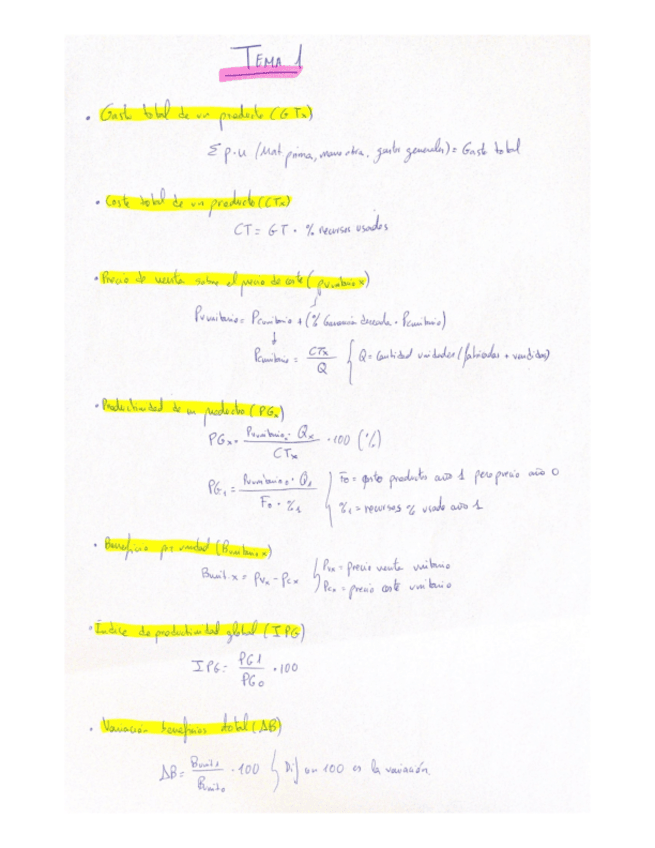 TEMA 1
• Gasto total de un producto (GTx)
Σ p·u (Mat. prima, mano obra, gastos generales) = Gasto total
• Coste total de un producto (CTx)
CT = GT · % recursos usados
• Precio de venta sobre el precio de coste (Pv unitario x)
Pv unitario = Pc unitario + (% Ganancia deseada · Pc unitario)
↓
Pc unitario = CTx / Q { Q = cantidad unidades (fabricadas + vendidas)
• Productividad de un producto (PGx)
PGx = Pv unitario · Qx / CTx · 100 (%)
PG1 = Pv unitario0 · Q1 / F0 · %1 { F0 = gasto productos año 1 pero precio año 0
%1 = recursos % usado año 1
• Beneficio por unidad (B unitario x)
Bunit. x = Pvx - Pcx { Pvx = precio venta unitario
Pcx = precio coste unitario
• Índice de productividad global (IPG)
IPG = PG1 / PG0 · 100
• Variación beneficios total (ΔB)
ΔB = Bunit1 / Bunit0 · 100 } Dif en 100 es la variación.